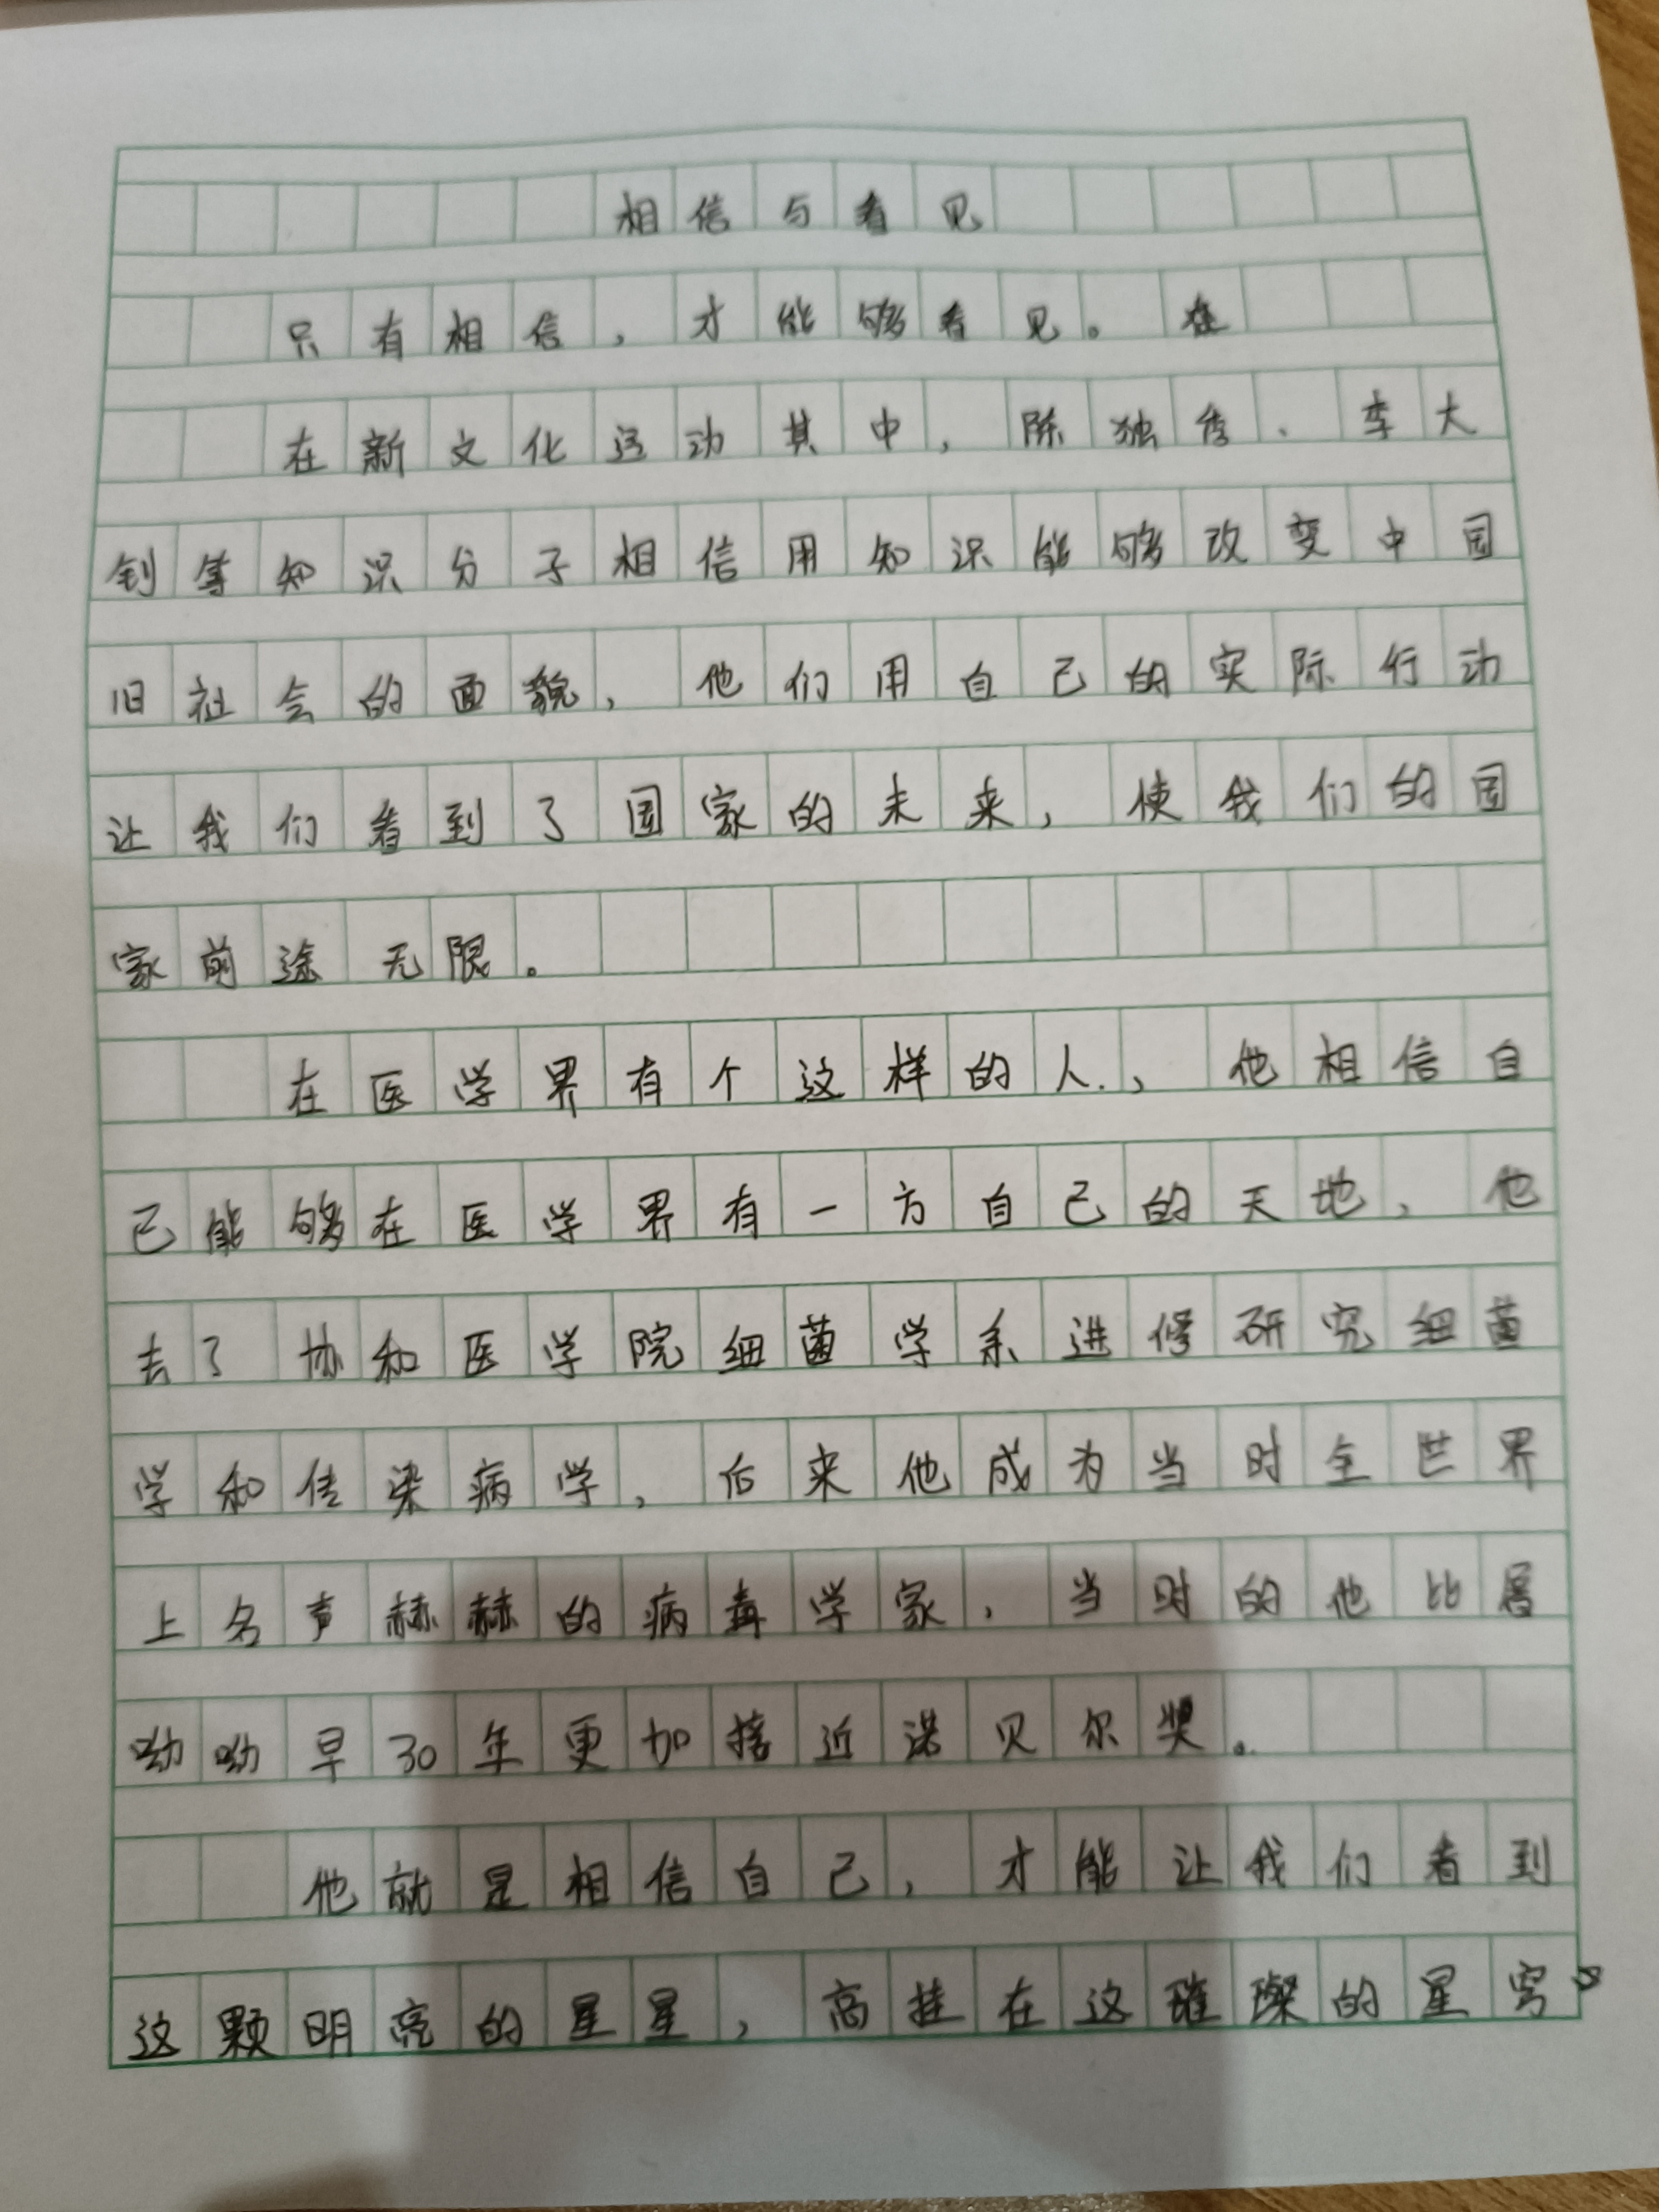 相信与看见
只有相信，才能够看见。在
在新文化运动其中，陈独秀、李大
钊等知识分子相信用知识能够改变中国
旧社会的面貌，他们用自己的实际行动
让我们看到了国家的未来，使我们的国
家前途无限。
在医学界有个这样的人，他相信自
己能够在医学界有一方自己的天地，他
去了协和医学院细菌学系进修研究细菌
学和传染病学，后来他成为当时全世界
上名声赫赫的病毒学家，当时的他比屠
呦呦早30年更加接近诺贝尔奖。
他就是相信自己，才能让我们看到
这颗明亮的星星，高挂在这璀璨的星穹。